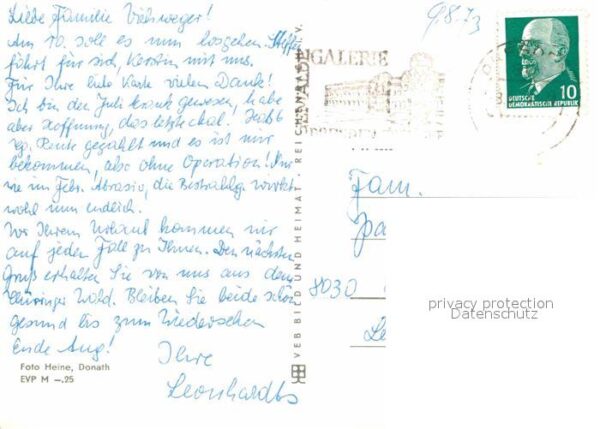 Liebe Familie
Am 10. soll es nun losgehen. Steffen
fährt für sich, Kerstin mit uns.
Für Ihre liebe Karte vielen Dank!
Ich bin den Juli krank gewesen, habe
aber Hoffnung, das letzte Mal!
gezählt und es ist mir
bekommen, also ohne Operation!
wie im Febr. Abrasio, die wirkt
wohl nun endlich.
Vor Ihrem Urlaub kommen wir
auf jeden Fall zu Ihnen. Den nächsten
Gruß erhalten Sie von uns aus dem
Thüringer Wald. Bleiben Sie beide schön
gesund bis zum Wiedersehen
Ende Aug!
Ihre
Leonhardts
Foto Heine, Donath
EVP M –.25
VEB BILD UND HEIMAT · REICHENBACH I. V.
9.8.73
GALERIE
10
DEUTSCHE
DEMOKRATISCHE REPUBLIK
Fam.
8030
privacy protection
Datenschutz